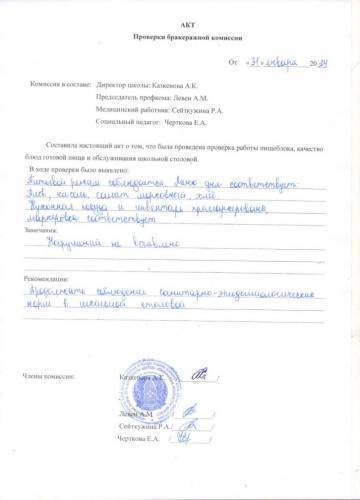 АКТ
Проверки бракеражной комиссии
От «31» января 20
Комиссия в составе: Директор школы: Казкенова А.К.
Председатель профкома: Левен А.М.
Медицинский работник: Сейткужина Р.А.
Социальный педагог: Черткова Е.А.
Составила настоящий акт о том, что была проведена проверка работы пищеблока, качество
блюд готовой пищи и обслуживания школьной столовой.
В ходе проверки было выявлено:
Питьевой режим соблюдается. Меню дня соответствует:
кисель, салат морковный, хлеб.
Кухонная посуда и инвентарь промаркирована,
маркировка соответствует
Замечания:
Нарушний не выявлено
Рекомендации:
Продолжать соблюдение санитарно-эпидемиологические
норм в школьной столовой
Члены комиссии: Казкенова А.К.
Левен А.М.
Сейткужина Р.А.
Черткова Е.А.